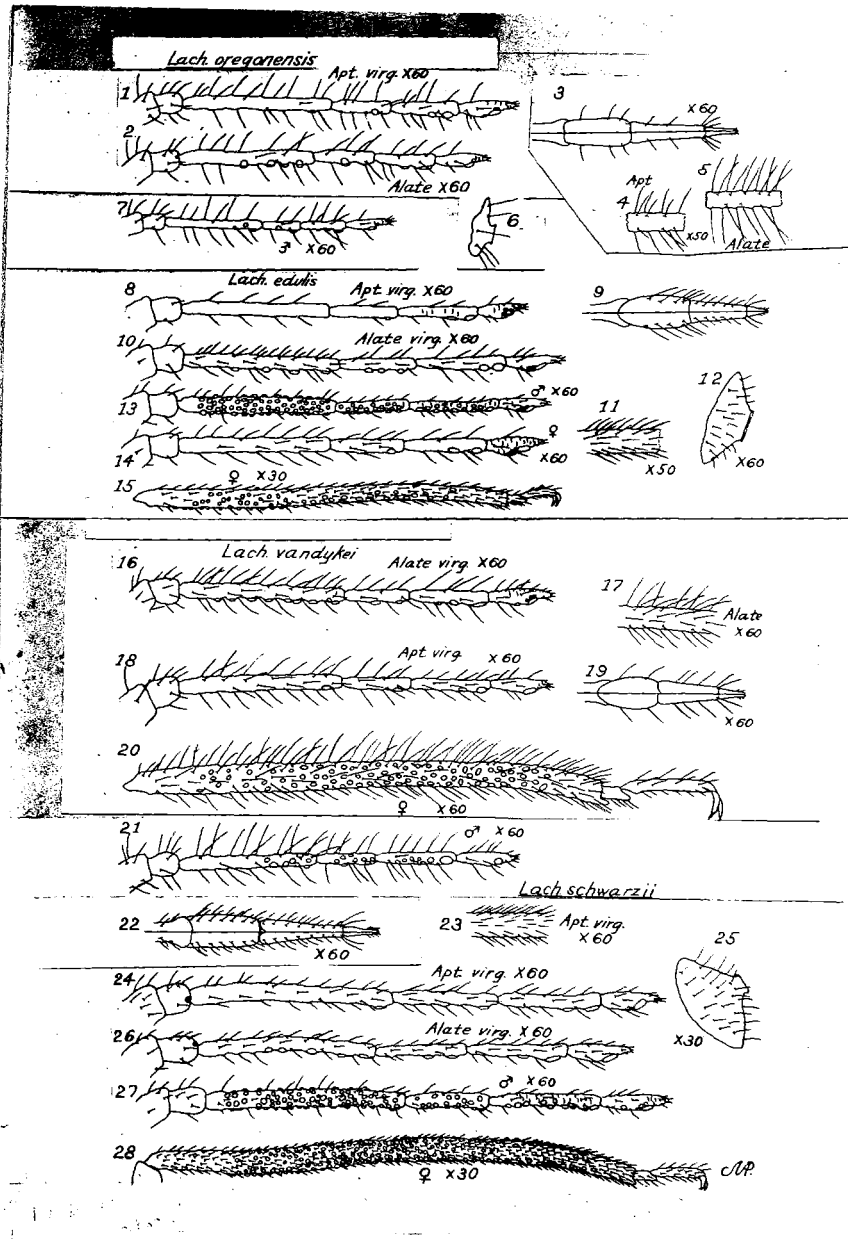 Lach. oregonensis
1 Apt. virg. X60
2
Alate X60
3 X60
4 Apt X50
5 Alate
6
7 ♂ X60
Lach. edulis
8 Apt virg. X60
9
10 Alate virg. X60
11 X50
12 X60
13 ♂ X60
14 ♀ X60
15 ♀ X30
Lach. vandykei
16 Alate virg. X60
17 Alate X60
18 Apt virg X60
19 X60
20 ♀ X60
21 ♂ X60
Lach schwarzii
22 X60
23 Apt. virg. X60
24 Apt virg. X60
25 X30
26 Alate virg. X60
27 ♂ X60
28 ♀ X30